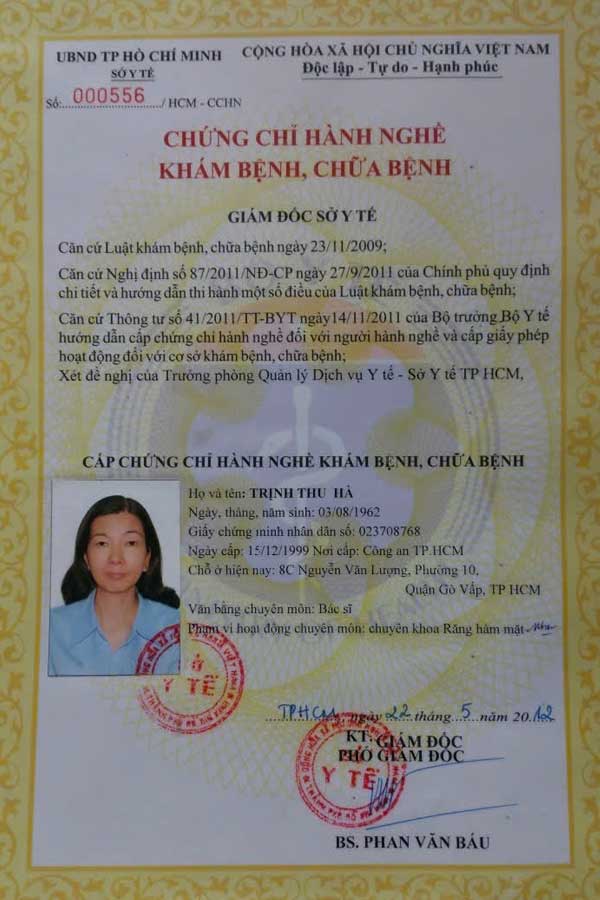 UBND TP HỒ CHÍ MINH
SỞ Y TẾ
Số: 000556 / HCM - CCHN
CỘNG HÒA XÃ HỘI CHỦ NGHĨA VIỆT NAM
Độc lập - Tự do - Hạnh phúc
CHỨNG CHỈ HÀNH NGHỀ
KHÁM BỆNH, CHỮA BỆNH
GIÁM ĐỐC SỞ Y TẾ
Căn cứ Luật khám bệnh, chữa bệnh ngày 23/11/2009;
Căn cứ Nghị định số 87/2011/NĐ-CP ngày 27/9/2011 của Chính phủ quy định
chi tiết và hướng dẫn thi hành một số điều của Luật khám bệnh, chữa bệnh;
Căn cứ Thông tư số 41/2011/TT-BYT ngày14/11/2011 của Bộ trưởng Bộ Y tế
hướng dẫn cấp chứng chỉ hành nghề đối với người hành nghề và cấp giấy phép
hoạt động đối với cơ sở khám bệnh, chữa bệnh;
Xét đề nghị của Trưởng phòng Quản lý Dịch vụ Y tế - Sở Y tế TP HCM,
CẤP CHỨNG CHỈ HÀNH NGHỀ KHÁM BỆNH, CHỮA BỆNH
Họ và tên: TRỊNH THU HÀ
Ngày, tháng, năm sinh: 03/08/1962
Giấy chứng minh nhân dân số: 023708768
Ngày cấp: 15/12/1999 Nơi cấp: Công an TP.HCM
Chỗ ở hiện nay: 8C Nguyễn Văn Lượng, Phường 10,
Quận Gò Vấp, TP HCM
Văn bằng chuyên môn: Bác sĩ
Phạm vi hoạt động chuyên môn: chuyên khoa Răng hàm mặt
SỞ
Y TẾ
TPHCM, ngày 22 tháng 5 năm 2012
KT. GIÁM ĐỐC
PHÓ GIÁM ĐỐC
Y TẾ
BS. PHAN VĂN BÁU